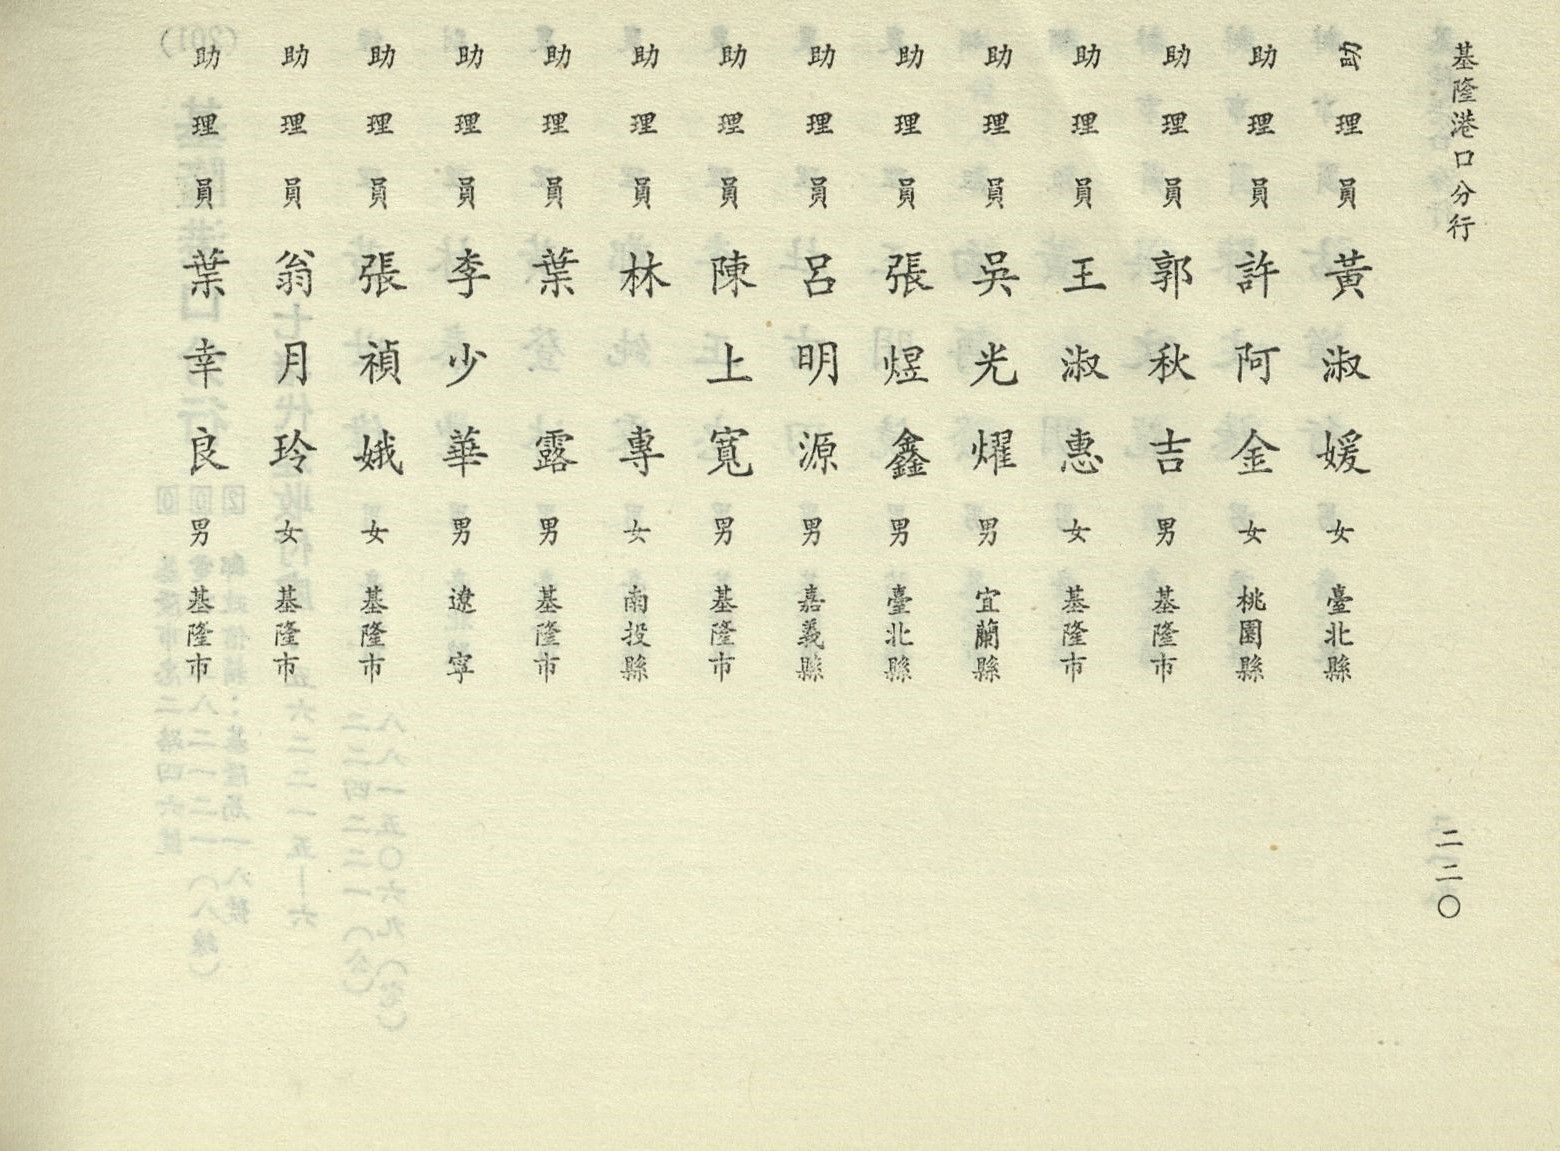 基隆港口分行
二二〇
助理員 黃淑媛 女 臺北縣
助理員 許阿金 女 桃園縣
助理員 郭秋吉 男 基隆市
助理員 王淑惠 女 基隆市
助理員 吳光燿 男 宜蘭縣
助理員 張煜鑫 男 臺北縣
助理員 呂明源 男 嘉義縣
助理員 陳上寬 男 基隆市
助理員 林專 女 南投縣
助理員 葉露 男 基隆市
助理員 李少華 男 遼寧
助理員 張禎娥 女 基隆市
助理員 翁月玲 女 基隆市
助理員 葉幸良 男 基隆市